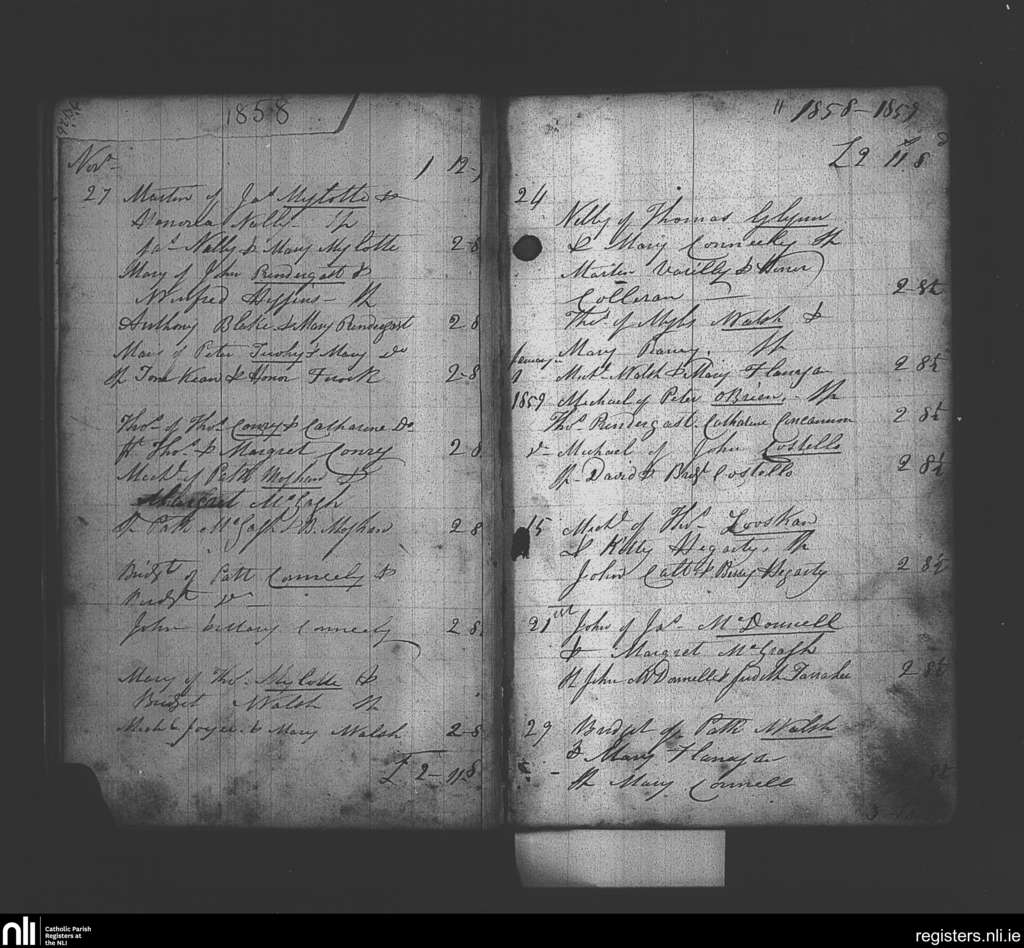 1858
Nov.
1 12
27 Martin of Jas. Mylotte &
Honorea Nally Sp
Jas. Nally & Mary Mylotte 2-8
Mary of John Prendergast &
Winifred Higgins - Sp
Anthony Blake & Mary Prendergast 2 8
Mary of Peter Tuohy & Mary do
Sp Tom Kean & Honor 2-8
Thos. of Thos. Conry & Catharine Do
Sp Thos. & Margret Conry 2 8
Mich. of Patk
Margaret McGagh
Sp Patk McGagh & B. 2 8
Bridgt of Patt Conneely &
Bridgt do
John & Mary Conneely 2 8
Mary of Thos. Mylotte &
Bridget Walsh Sp
Michl. Joyce & Mary Walsh 2-8
£ 2-11-8
1858-1859
£2 11 8
24
Nelly of Thomas Glynn
& Mary Conneely Sp
Martin Varilly & Honor
Colleran 2 8½
Thos. of Myls Walsh &
Mary Sp
January
9 Michl. Walsh & Mary Flanaga 2 8½
1859 Michael of Peter OBrien, Sp
Thos. Prendergast. Catharine Concannon 2 8½
do Michael of John Costello
Sp David & Bridgt Costello 2 8½
15 Michl. of Thos. Looskan
& Kitty Hegarty, Sp
John Catt & Bessy Hegarty 2 8½
21st John of Jas. McDonnell
& Margret McGragh
Sp John McDonnell & Judith 2 8½
29 Bridget of Patk Walsh
& Mary Flanaga
Sp Mary Connell
nli
Catholic Parish
Registers at
the NLI
registers.nli.ie